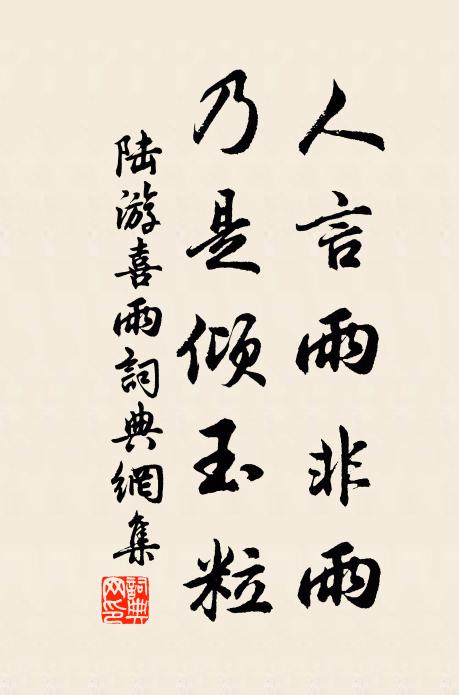 人言雨非雨
乃是倾玉粒
陆游喜雨詞典網集
詞典网印